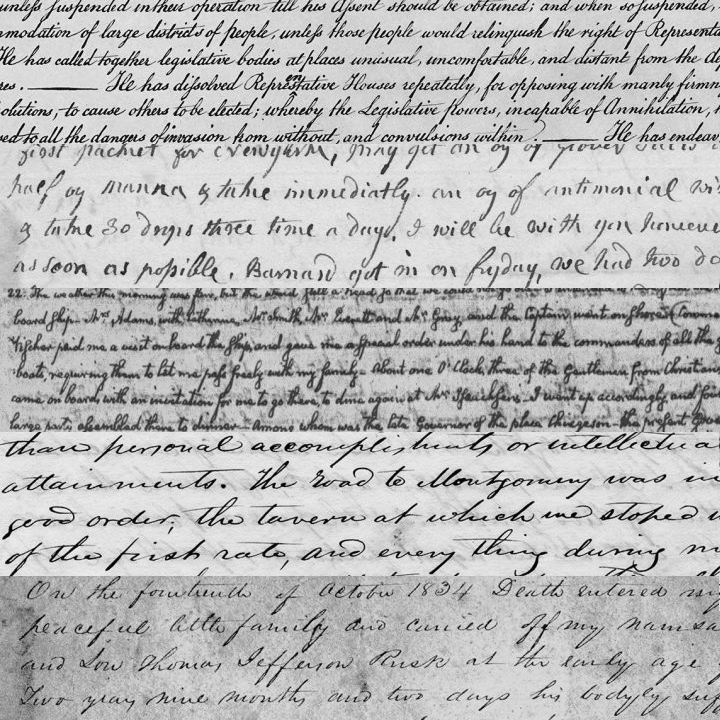 unless suspended in their operation till his Assent should be obtained; and when so suspended,
modation of large districts of people, unless those people would relinquish the right of Representa
He has called together legislative bodies at places unusual, uncomfortable, and distant from the
res. ——— He has dissolved Representative Houses repeatedly, for opposing with manly firmn
olutions, to cause others to be elected; whereby the Legislative powers, incapable of Annihilation,
ed to all the dangers of invasion from without, and convulsions within. ——— He has endeav
first packet for may get an oz of
half oz manna & take immediatly. an oz of antimonial wi
& take 30 drops three time a day. I will be with you however
as soon as possible. Barnard got in on fryday, we had two
22. The weather this morning was fair, but the wind still a head so that we could
board ship. Mrs. Adams, with Catherine, Mr. Smith, Mr. Everett and Mr. Gray, and the Captain went on shore. (Commo
Fischer paid me a visit on board the ship, and gave me a special order under his hand to the commanders of all the
boats, requiring them to let me pass freely with my family. About one O'Clock, three of the Gentlemen from Christian
came on board, with an invitation for me to go there, to dine again at Mr. I went up accordingly, and fou
large party assembled there to dinner. Among whom was the late Governor of the place the present Gove
than personal accomplishments or intellectua
attainments. The road to Montgomery was in
good order, the tavern at which we stoped
of the first rate, and every thing during
On the fourteenth of October 1834 Death entered my
peaceful little family and carried off my namesa
and Son Thomas Jefferson Rusk at the early age
Two years nine months and two days his bodyly suff